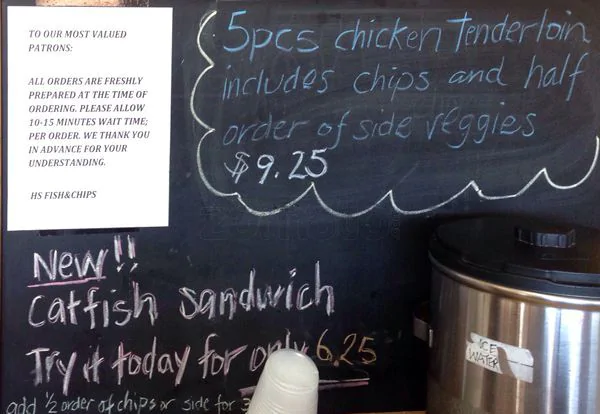 TO OUR MOST VALUED
PATRONS:
ALL ORDERS ARE FRESHLY
PREPARED AT THE TIME OF
ORDERING. PLEASE ALLOW
10-15 MINUTES WAIT TIME;
PER ORDER. WE THANK YOU
IN ADVANCE FOR YOUR
UNDERSTANDING.
HS FISH&CHIPS
5pcs chicken Tenderloin
includes chips and half
order of side veggies
$9.25
New!!
Catfish sandwich
Try it today for only 6.25
add 1/2 order of chips or side for 3
ICE
WATER